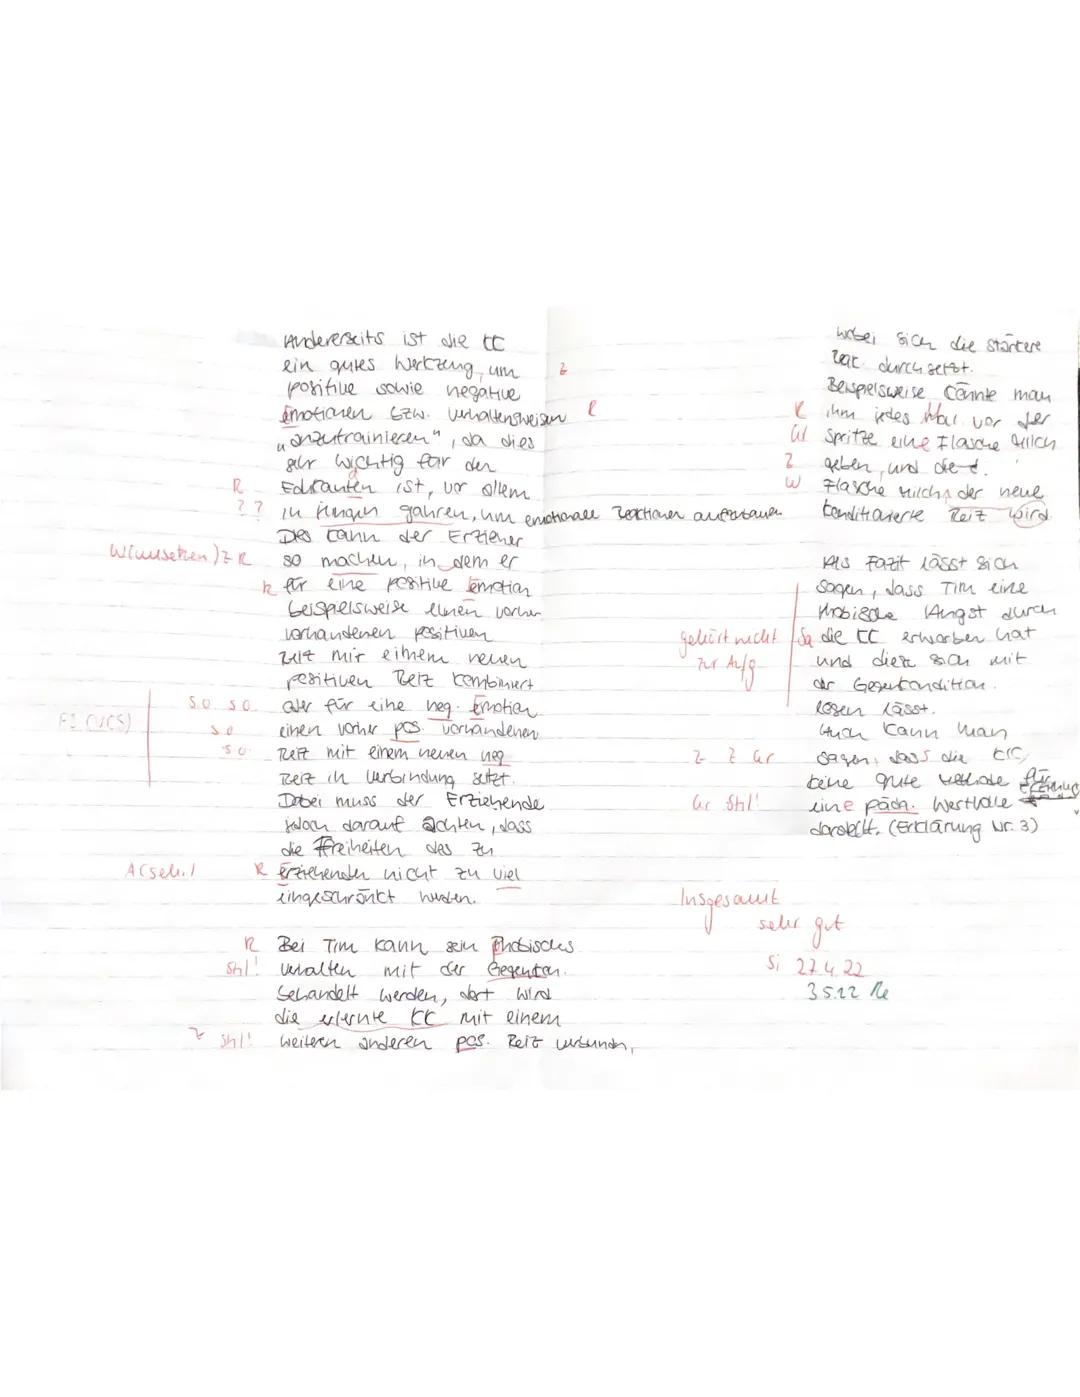 Andererseits ist die KC
ein gutes Werkzeug, um
positive sowie negative
Emotionen bzw. Verhaltensweisen
„anzutrainieren", da dies
sehr wichtig für den
Edukanten ist, vor allem
in jungen Jahren, um emotionale Reaktionen aufzubauen
Dies kann der Erzieher
so machen, in dem er
für eine positive Emotion
beispielsweise einen vorher
vorhandenen positiven
Reiz mir einem neuen
positiven Reiz kombiniert
aber für eine neg. Emotion
einen vorher pos. vorhandenen
Reiz mit einem neuen neg
Reiz in Verbindung setzt.
Dabei muss der Erziehende
jedoch darauf achten, dass
die Freiheiten des zu
erziehenden nicht zu viel
eingeschränkt werden.
Bei Tim kann sein Phobisches
Verhalten mit der Gegenkon.
behandelt werden, dort wird
die erlernte KC mit einem
weiteren anderen pos. Reiz verbunden,
Z
R
R
??
W(umsetzen) Z R
R
s.o. s.o.
s.o
s.o.
F2 (UCS)
A(sehr!)
R
R
Stil!
Z Stil!
wobei sich die stärkere
Reak. durchsetzt.
Beispielsweise könnte man
ihm jedes Mal vor der
Spritze eine Flasche Milch
geben, und die
Flasche Milch der neue
konditionierte Reiz wird
Als Fazit lässt sich
sagen, dass Tim eine
Phobische Angst durch
die KC erworben hat
und diese sich mit
der Gegenkondition.
lösen lässt.
Auch kann man
sagen, dass die KC,
keine gute Methode für
eine päda. Wertvolle Erziehung
darstellt. (Erklärung Nr. 3)
R
Gr
Z
W
gehört nicht Sa
zur Aufg.
Z Z Gr
Gr Stil!
Insgesamt
sehr gut
Si 27.4.22
3.5.22 Re